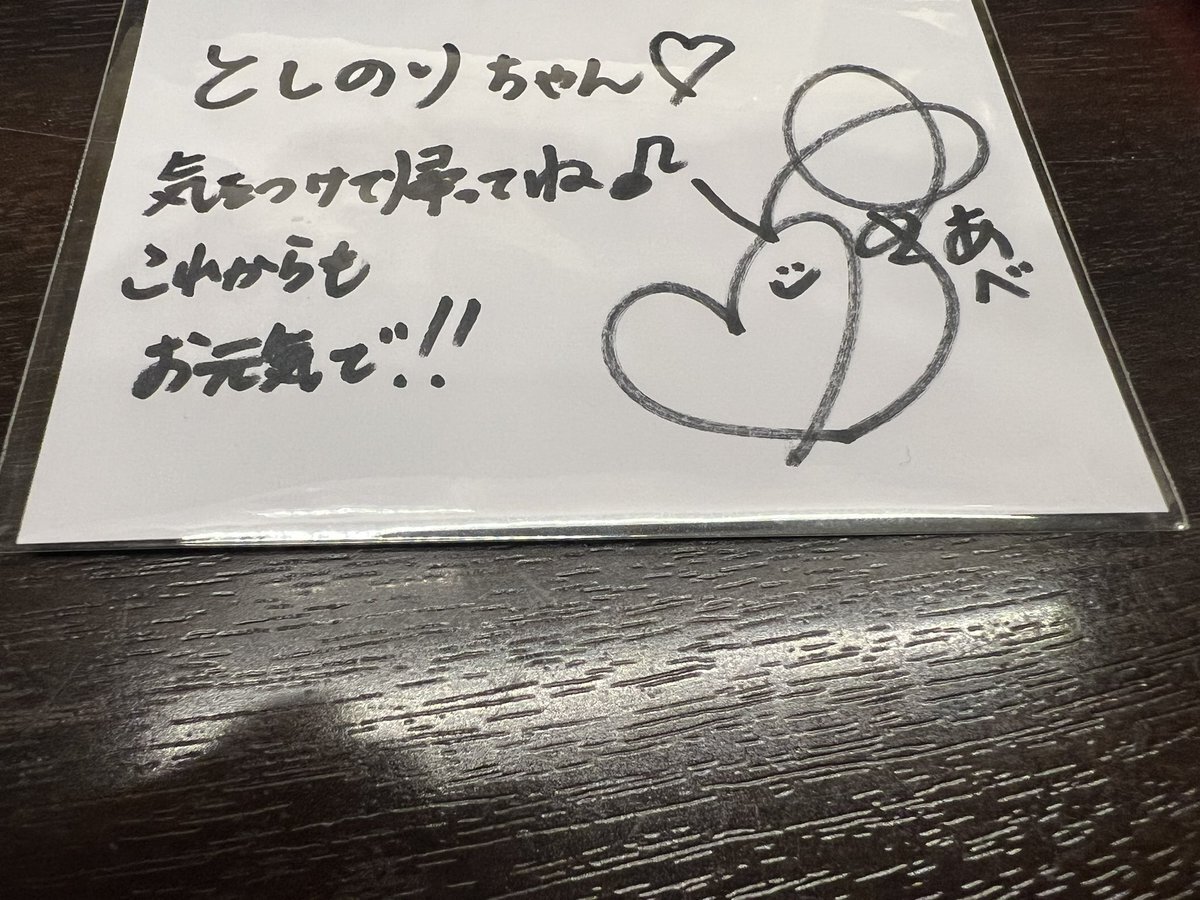 としのりちゃん♡
気をつけて帰ってね♪
これからも
お元気で!!
あべ